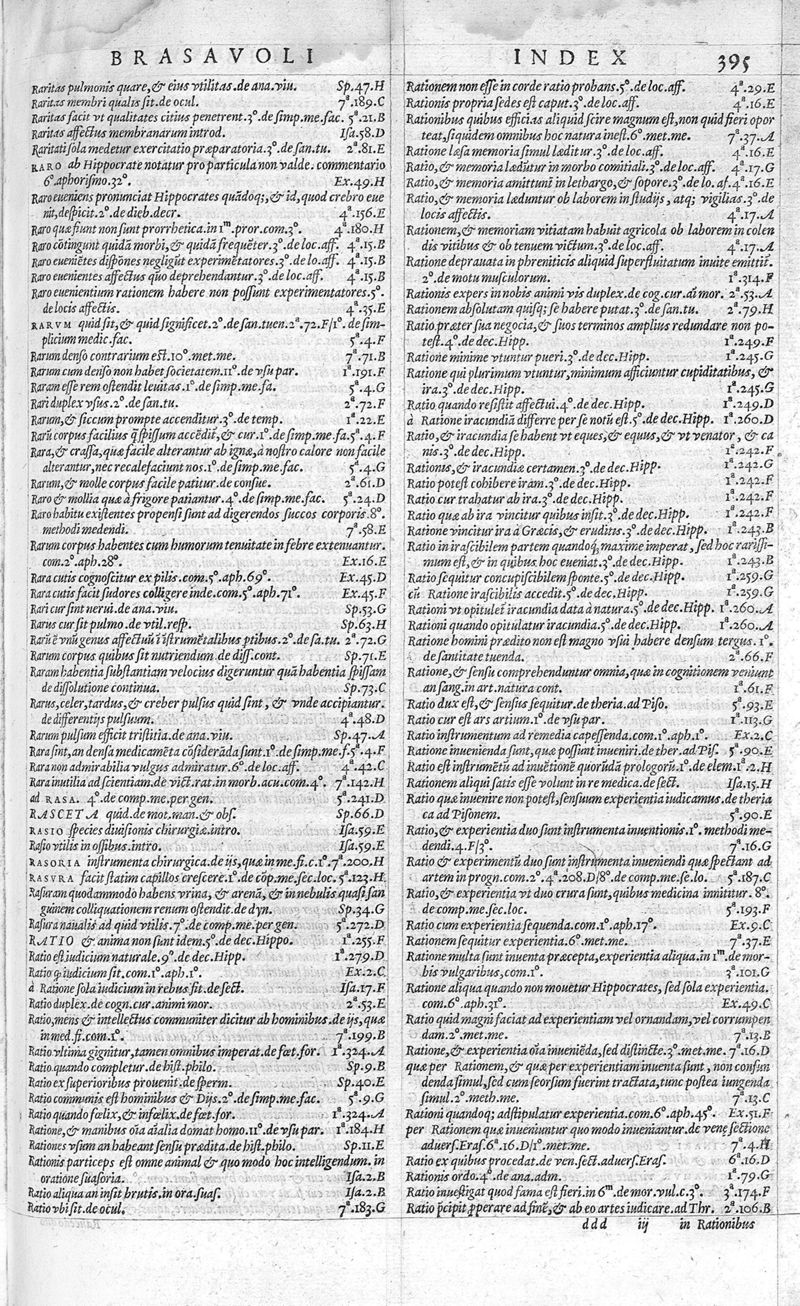 BRASAVOLI INDEX 395
Raritas pulmonis quare, & eius vtilitas. de ana. viu. Sp.47.H
Raritas membri qualis sit. de ocul. 7ª.189.C
Raritas facit vt qualitates citius penetrent. 3º. de simp. me. fac. 5ª.21.B
Raritas affectus membranarum introd. Isa.58.D
Raritati sola medetur exercitatio præparatoria. 3º. de san. tu. 2ª.81.E
RARO ab Hippocrate notatur pro particula non valde. commentario
6º. aphorismo. 32º. Ex.49.H
Raro eueniens pronunciat Hippocrates quādoq;, & id, quod crebro eue
nit, despicit. 2º. de dieb. decr. 4ª.156.E
Raro quæ fiunt non sunt prorrhetica. in 1ᵐ. pror. com. 3º. 4ª.180.H
Raro cōtingunt quidā morbi, & quidā frequēter. 3º. de loc. aff. 4ª.15.B
Raro eueniētes dispōnes negligūt experimētatores. 3º. de lo. aff. 4ª.15.B
Raro euenientes affectus quo deprehendantur. 3º. de loc. aff. 4ª.15.B
Raro euenientium rationem habere non possunt experimentatores. 5º.
de locis affectis. 4ª.35.E
RARVM quid sit, & quid significet. 2º. de san. tuen. 2ª.72.F/1º. de sim-
plicium medic. fac. 5ª.4.F
Rarum denso contrarium est. 10º. met. me. 7ª.71.B
Rarum cum denso non habet societatem. 11º. de vsu par. 1ª.191.F
Raram esse rem ostendit leuitas. 1º. de simp. me. fa. 5ª.4.G
Rari duplex vsus. 2º. de san. tu. 2ª.72.F
Rarum, & siccum prompte accenditur. 3º. de temp. 1ª.22.E
Rarū corpus facilius q̄ spissum accēdit, & cur. 1º. de simp. me. fa. 5ª.4.F
Rara, & crassa, quæ facile alterantur ab ignæ, à nostro calore non facile
alterantur, nec recalefaciunt nos. 1º. de simp. me. fac. 5ª.4.G
Rarum, & molle corpus facile patitur. de consue. 2ª.61.D
Raro & mollia quæ à frigore patiantur. 4º. de simp. me. fac. 5ª.24.D
Raro habitu existentes propensi sunt ad digerendos succos corporis. 8º.
methodi medendi. 7ª.58.E
Rarum corpus habentes cum humorum tenuitate in febre extenuantur.
com. 2º. aph. 28º. Ex.16.E
Rara cutis cognoscitur ex pilis. com. 5º. aph. 69º. Ex.45.D
Rara cutis facit sudores colligere inde. com. 5º. aph. 71º. Ex.45.F
Rari cur sint nerui. de ana. viu. Sp.53.G
Rarus cur sit pulmo. de vtil. resp. Sp.63.H
Rarū ē vnū genus affectuū ī īstrumētalibus ptibus. 2º. de sa. tu. 2ª.72.G
Rarum corpus quibus sit nutriendum. de diss. cont. Sp.71.E
Raram habentia substantiam velocius digeruntur quā habentia spissam
de dissolutione continua. Sp.73.C
Rarus, celer, tardus, & creber pulsus quid sint, & vnde accipiantur.
de differentijs pulsuum. 4ª.48.D
Rarum pulsum efficit tristitia. de ana. viu. Sp.47.A
Rara sint, an densa medicamēta cōsiderāda sunt. 1º. de simp. me. f. 5ª.4.F
Rara non admirabilia vulgus admiratur. 6º. de loc. aff. 4ª.42.C
Rara inutilia ad scientiam. de vict. rat. in morb. acu. com. 4º. 7ª.142.H
ad RASA. 4º. de comp. me. per gen. 5ª.241.D
RASCETA quid. de mot. man. & obs. Sp.66.D
RASIO species diuisionis chirurgiæ. intro. Isa.59.E
Rasio vtilis in ossibus. intro. Isa.59.E
RASORIA instrumenta chirurgica. de ijs, quæ in me. fi. c. 1º. 7ª.200.H
RASVRA facit statim capillos crescere. 1º. de cōp. me. sec. loc. 5ª.123.H
Rasuram quodammodo habens vrina, & arenā, & in nebulis quasi san
guinem colliquationem renum ostendit. de dyn. Sp.34.G
Rasura naualis ad quid vtilis. 7º. de comp. me. per gen. 5ª.272.D
RATIO & anima non sunt idem. 5º. de dec. Hippo. 1ª.255.F
Ratio est iudicium naturale. 9º. de dec. Hipp. 1ª.279.D
Ratio q̄ iudicium sit. com. 1º. aph. 1º. Ex.2.C
à Ratione sola iudicium in rebus fit. de sect. Isa.17.F
Ratio duplex. de cogn. cur. animi mor. 2ª.53.E
Ratio, mens & intellectus communiter dicitur ab hominibus. de ijs, quæ
in med. fi. com. 1º. 7ª.199.B
Ratio vltima gignitur, tamen omnibus imperat. de fœt. for. 1ª.324.A
Ratio quando completur. de hist. philo. Sp.9.B
Ratio ex superioribus prouenit. de sperm. Sp.40.E
Ratio communis est hominibus & Dijs. 2º. de simp. me. fac. 5ª.9.G
Ratio quando fœlix, & infœlix. de fœt. for. 1ª.324.A
Ratione, & manibus oīa aīalia domat homo. 11º. de vsu par. 1ª.184.H
Rationes vsum an habeant sensu prædita. de hist. philo. Sp.11.E
Rationis particeps est omne animal & quo modo hoc intelligendum. in
oratione suasoria. Isa.2.B
Ratio aliqua an insit brutis. in ora. suas. Isa.2.B
Ratio vbi sit. de ocul. 7ª.183.G
Rationem non esse in corde ratio probans. 5º. de loc. aff. 4ª.29.E
Rationis propria sedes est caput. 3º. de loc. aff. 4ª.16.E
Rationibus quibus efficias aliquid scire magnum est, non quid fieri opor
teat, siquidem omnibus hoc natura inest. 6º. met. me. 7ª.37.A
Ratione læsa memoria simul læditur. 3º. de loc. aff. 4ª.16.E
Ratio, & memoria lædūtur in morbo comitiali. 3º. de loc. aff. 4ª.17.G
Ratio, & memoria amittunī in lethargo, & sopore. 3º. de lo. af. 4ª.16.E
Ratio, & memoria læduntur ob laborem in studijs, atq; vigilias. 3º. de
locis affectis. 4ª.17.A
Rationem, & memoriam vitiatam habuit agricola ob laborem in colen
dis vitibus & ob tenuem victum. 3º. de loc. aff. 4ª.17.A
Ratione deprauata in phreniticis aliquid superfluitatum inuite emittit̄.
2º. de motu musculorum. 1ª.314.F
Rationis expers in nobis animi vis duplex. de cog. cur. aī mor. 2ª.53.A
Rationem absolutam quisq; se habere putat. 3º. de san. tu. 2ª.79.H
Ratio præter sua negocia, & suos terminos amplius redundare non po-
test. 4º. de dec. Hipp. 1ª.249.F
Ratione minime vtuntur pueri. 3º. de dec. Hipp. 1ª.245.G
Ratione qui plurimum vtuntur, minimum afficiuntur cupiditatibus, &
ira. 3º. de dec. Hipp. 1ª.245.G
Ratio quando resistit affectui. 4º. de dec. Hipp. 1ª.249.D
à Ratione iracundiā differre per se notū est. 5º. de dec. Hipp. 1ª.260.D
Ratio, & iracundia se habent vt eques, & equus, & vt venator, & ca
nis. 3º. de dec. Hipp. 1ª.242.F
Rationis, & iracundiæ certamen. 3º. de dec. Hipp. 1ª.242.G
Ratio potest cohibere iram. 3º. de dec. Hipp. 1ª.242.F
Ratio cur trahatur ab ira. 3º. de dec. Hipp. 1ª.242.F
Ratio quæ ab ira vincitur quibus insit. 3º. de dec. Hipp. 1ª.242.F
Ratione vincitur ira à Græcis, & eruditis. 3º. de dec. Hipp. 1ª.243.B
Ratio in irascibilem partem quandoq; maxime imperat, sed hoc rarissi-
mum est, & in quibus hoc eueniat. 3º. de dec. Hipp. 1ª.243.B
Ratio sequitur concupiscibilem sponte. 5º. de dec. Hipp. 1ª.259.G
cū Ratione irascibilis accedit. 5º. de dec. Hipp. 1ª.259.G
Rationi vt opitulet̄ iracundia data à natura. 5º. de dec. Hipp. 1ª.260.A
Rationi quando opitulatur iracundia. 5º. de dec. Hipp. 1ª.260.A
Ratione homini prædito non est magno vsui habere densum tergus. 1º.
de sanitate tuenda. 2ª.66.F
Ratione, & sensu comprehenduntur omnia, quæ in cognitionem veniunt
an sang. in art. natura cont. 1ª.61.F
Ratio dux est, & sensus sequitur. de theria. ad Piso. 5ª.93.E
Ratio cur est ars artium. 1º. de vsu par. 1ª.113.G
Ratio instrumentum ad remedia capessenda. com. 1º. aph. 1º. Ex.2.C
Ratione inuenienda sunt, quæ possunt inueniri. de ther. ad Pis. 5ª.90.E
Ratio est instrumētū ad inuētionē quorūdā prologorū. 1º. de elem. 1ª.2.H
Rationem aliqui satis esse volunt in re medica. de sect. Isa.15.H
Ratio quæ inuenire non potest, sensuum experientia iudicamus. de theria
ca ad Pisonem. 5ª.90.E
Ratio, & experientia duo sunt instrumenta inuentionis. 1º. methodi me-
dendi. 4.F/3º. 7ª.16.G
Ratio & experimentū duo sunt instrumenta inueniendi quæ spectant ad
artem in progn. com. 2º. 4ª.208.D/8º. de comp. me. se. lo. 5ª.187.C
Ratio, & experientia vt duo crura sunt, quibus medicina innititur. 8º.
de comp. me. sec. loc. 5ª.193.F
Ratio cum experientia sequenda. com. 1º. aph. 17º. Ex.9.C
Rationem sequitur experientia. 6º. met. me. 7ª.37.E
Ratione multa sunt inuenta præcepta, experientia aliqua. in 1ᵐ. de mor-
bis vulgaribus, com. 1º. 3ª.101.G
Ratione aliqua quando non mouetur Hippocrates, sed sola experientia.
com. 6º. aph. 31º. Ex.49.C
Ratio quid magni faciat ad experientiam vel ornandam, vel corrumpen
dam. 2º. met. me. 7ª.13.B
Ratione, & experientia oīa inueniēda, sed distincte. 3º. met. me. 7ª.16.D
quæ per Rationem, & quæ per experientiam inuenta sunt, non confun
denda simul, sed cum seorsum fuerint tractata, tunc postea iungenda
simul. 2º. meth. me. 7ª.13.C
Rationi quandoq; adstipulatur experientia. com. 6º. aph. 45º. Ex.51.F
per Rationem quæ inueniuntur quo modo inueniantur. de venę sectione
aduers. Eras. 6ª.16.D/1º. met. me. 7ª.4.H
Ratio ex quibus procedat. de ven. sect. aduers. Eras. 6ª.16.D
Rationis ordo. 4º. de ana. adm. 1ª.79.G
Ratio inuestigat quod fama est fieri. in 6ᵐ. de mor. vul. c. 3º. 3ª.174.F
Ratio p̄cipit p̱perare ad finē, & ab eo artes iudicare. ad Thr. 2ª.106.B
ddd iij in Rationibus